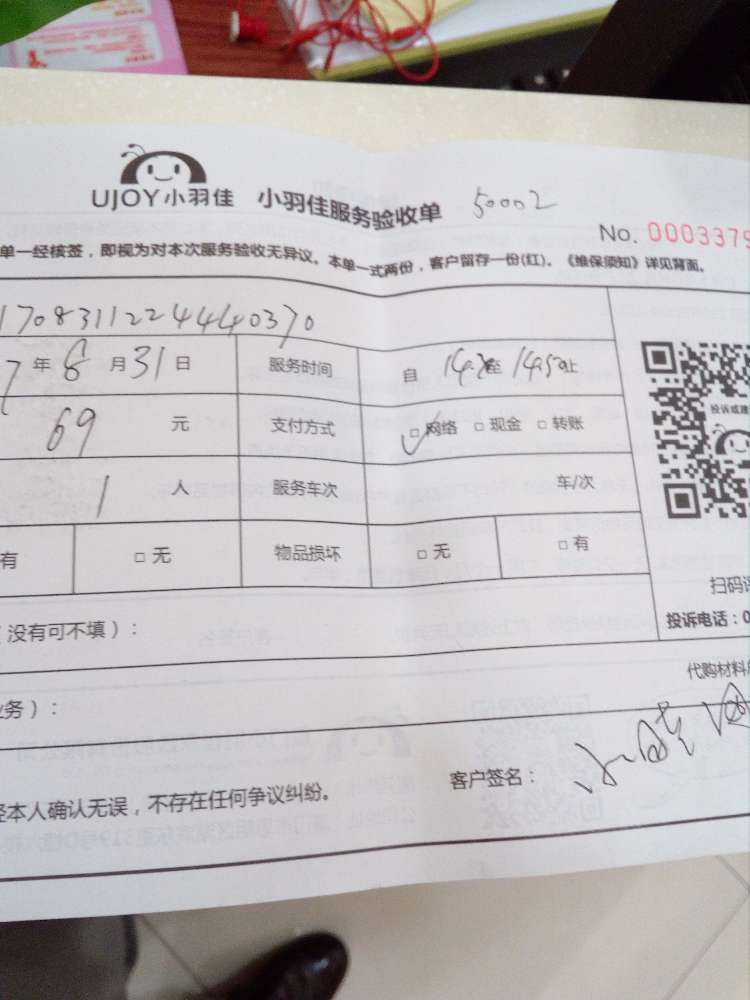 UJOY小羽佳 小羽佳服务验收单 50002
No. 0003379
单一经核签，即视为对本次服务验收无异议。本单一式两份，客户留存一份(红)。《维保须知》详见背面。
17083112244440370
7年8月31日 服务时间 自 至 14:50止
69 元 支付方式 □网络 □现金 □转账
1 人 服务车次 车/次
有 □无 物品损坏 □无 □有
投诉或建
扫码评
（没有可不填）：
投诉电话：0
代购材料
业务）：
经本人确认无误，不存在任何争议纠纷。
客户签名：